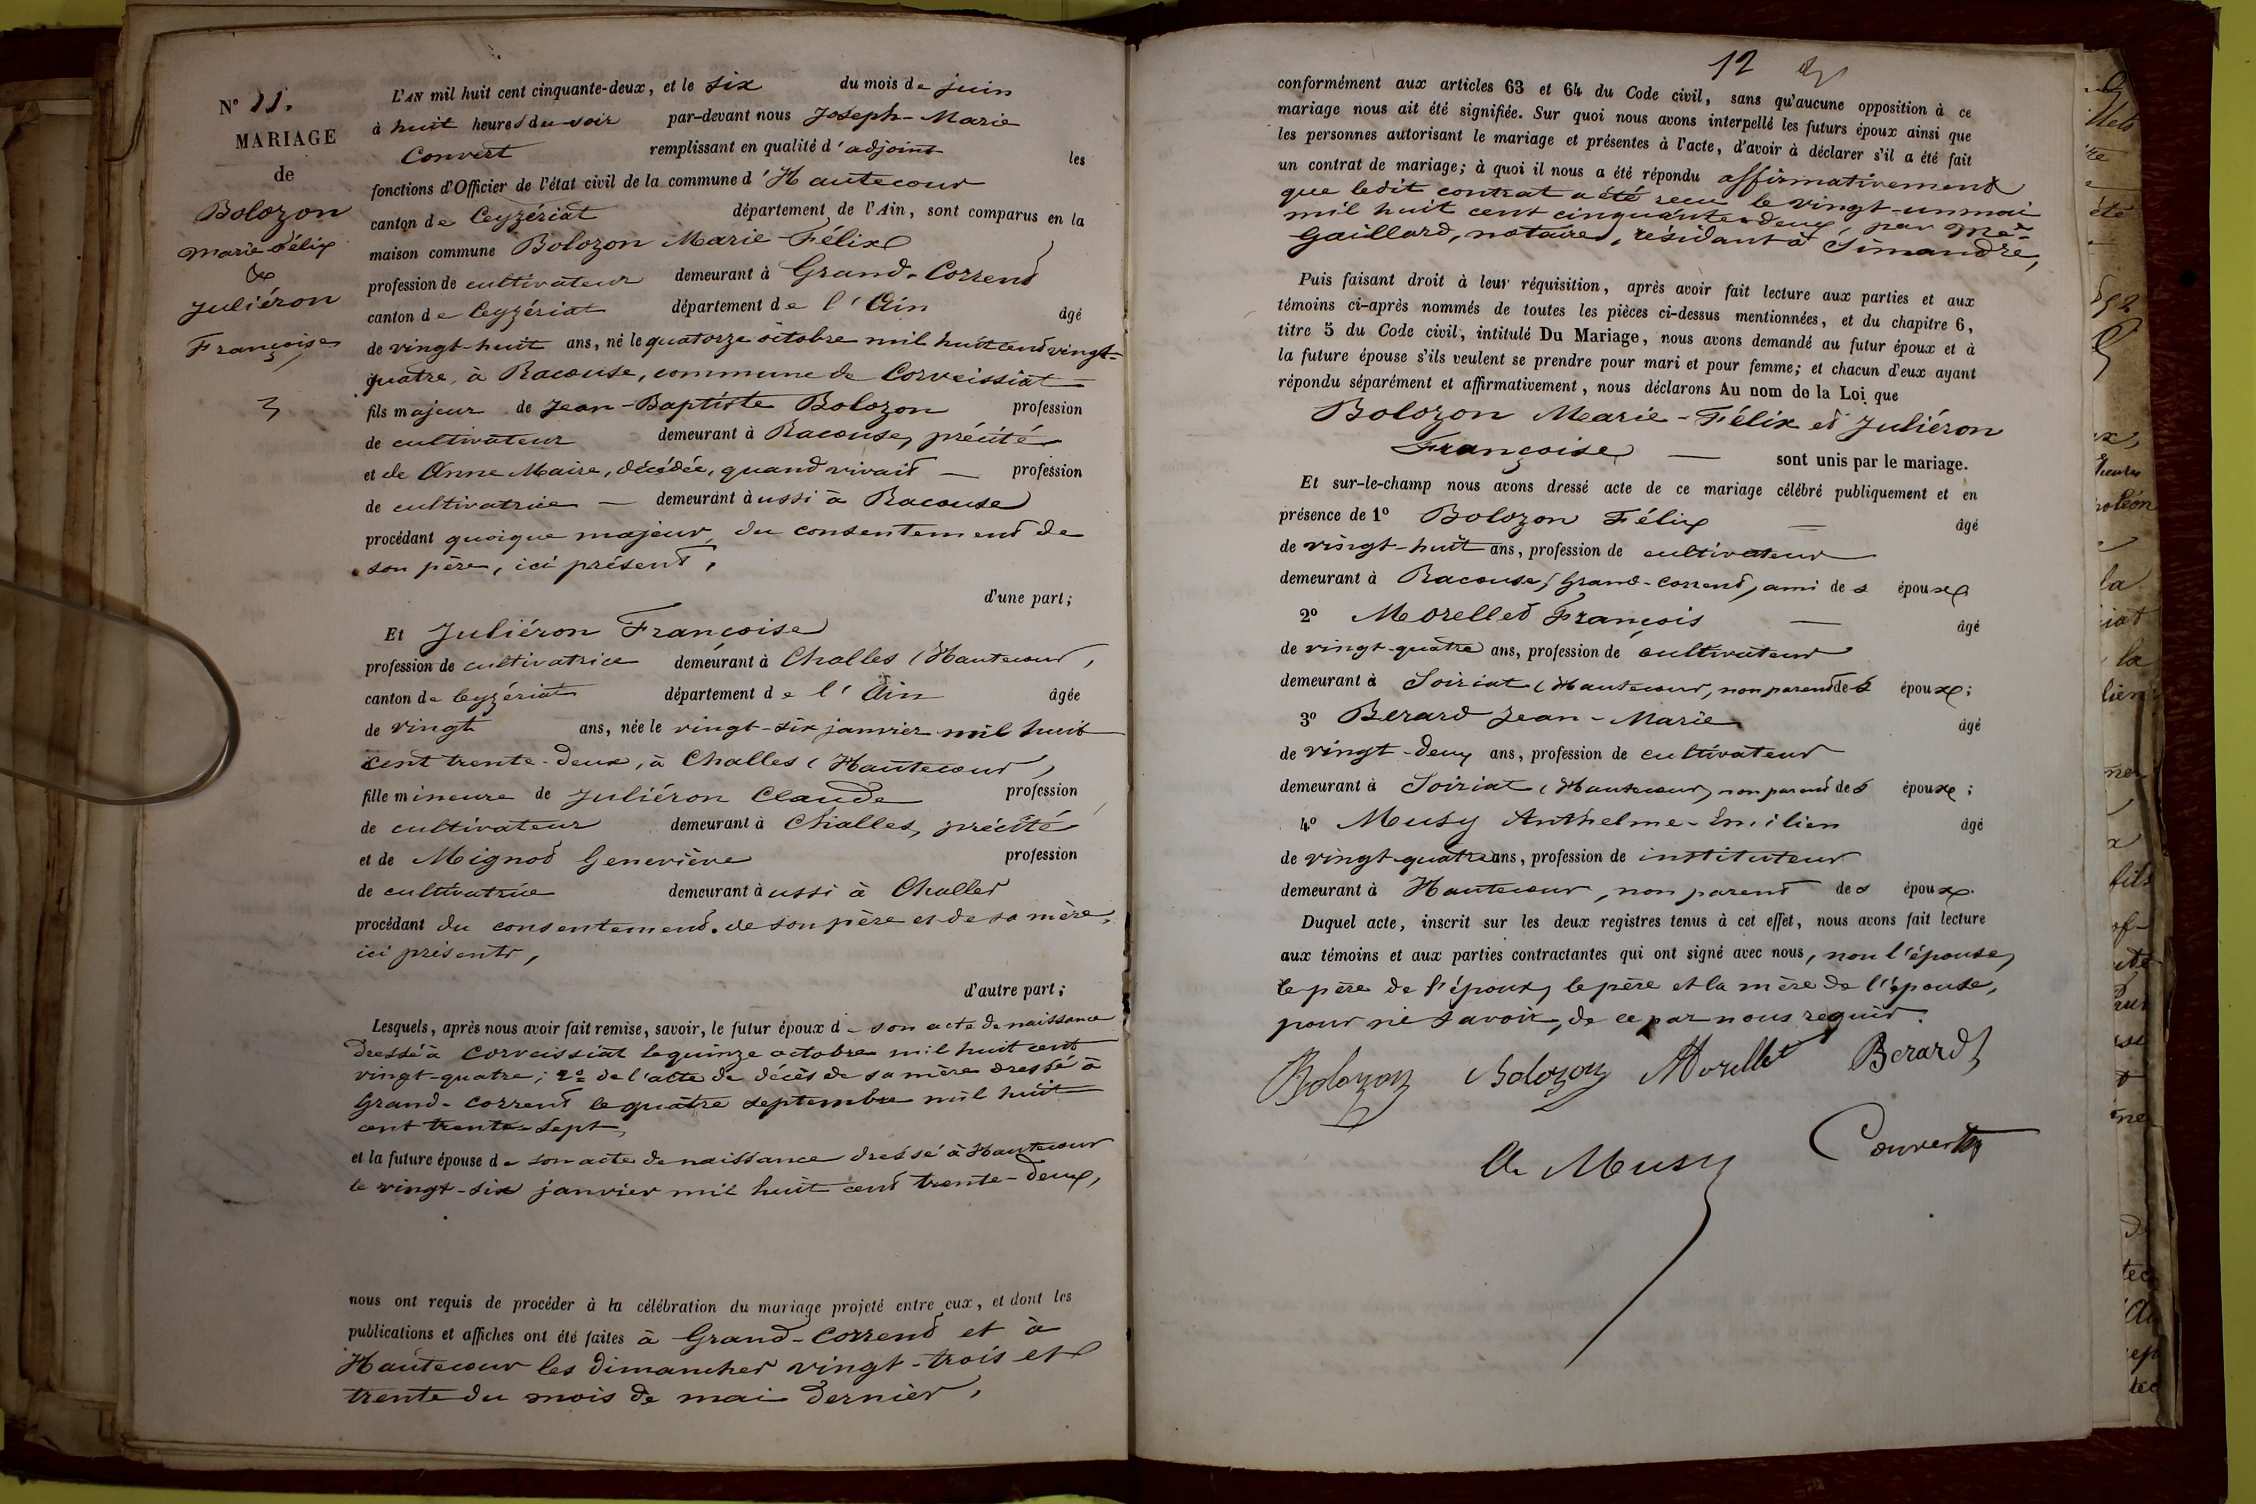 N° 11.
MARIAGE
de
Bolozon
Marie-Félix
&
Juliéron
Françoise
L'AN mil huit cent cinquante-deux, et le six du mois de juin
à huit heures du soir par-devant nous Joseph-Marie
Convert remplissant en qualité d'adjoint les
fonctions d'Officier de l'état civil de la commune d'Hautecour
canton de Ceyzériat département de l'Ain, sont comparus en la
maison commune Bolozon Marie-Félix
profession de cultivateur demeurant à Grand-Corrent
canton de Ceyzériat département de l'Ain âgé
de vingt-huit ans, né le quatorze octobre mil huit cent vingt-
quatre, à Racouse, commune de Corveissiat
fils majeur de Jean-Baptiste Bolozon profession
de cultivateur demeurant à Racouse, précité
et de Anne Maire, décédée, quand vivait — profession
de cultivatrice — demeurant aussi à Racouse
procédant quoique majeur, du consentement de
son père, ici présent,
d'une part;
Et Juliéron Françoise
profession de cultivatrice demeurant à Challes (Hautecour,
canton de Ceyzériat département de l'Ain âgée
de vingt ans, née le vingt-six janvier mil huit
cent trente-deux, à Challes (Hautecour)
fille mineure de Juliéron Claude profession
de cultivateur demeurant à Challes, précité
et de Mignot Geneviève profession
de cultivatrice demeurant aussi à Challes
procédant du consentement de son père et de sa mère,
ici présents,
d'autre part;
Lesquels, après nous avoir fait remise, savoir, le futur époux de son acte de naissance
dressé à Corveissiat le quinze octobre mil huit cent
vingt-quatre; 2° de l'acte de décès de sa mère dressé à
Grand-Corrent le quatre septembre mil huit
cent trente-sept,
et la future épouse de son acte de naissance dressé à Hautecour
le vingt-six janvier mil huit cent trente-deux,
nous ont requis de procéder à la célébration du mariage projeté entre eux, et dont les
publications et affiches ont été faites à Grand-Corrent et à
Hautecour les dimanches vingt-trois et
trente du mois de mai dernier,
12
conformément aux articles 63 et 64 du Code civil, sans qu'aucune opposition à ce
mariage nous ait été signifiée. Sur quoi nous avons interpellé les futurs époux ainsi que
les personnes autorisant le mariage et présentes à l'acte, d'avoir à déclarer s'il a été fait
un contrat de mariage; à quoi il nous a été répondu affirmativement
que ledit contrat a été reçu le vingt-un mai
mil huit cent cinquante-deux, par Me
Gaillard, notaire, résidant à Simandre,
Puis faisant droit à leur réquisition, après avoir fait lecture aux parties et aux
témoins ci-après nommés de toutes les pièces ci-dessus mentionnées, et du chapitre 6,
titre 5 du Code civil, intitulé Du Mariage, nous avons demandé au futur époux et à
la future épouse s'ils veulent se prendre pour mari et pour femme; et chacun d'eux ayant
répondu séparément et affirmativement, nous déclarons Au nom de la Loi que
Bolozon Marie-Félix et Juliéron
Françoise — sont unis par le mariage.
Et sur-le-champ nous avons dressé acte de ce mariage célébré publiquement et en
présence de 1° Bolozon Félix — âgé
de vingt-huit ans, profession de cultivateur
demeurant à Racouse, (Grand-Corrent, ami des époux
2° Morellet François — âgé
de vingt-quatre ans, profession de cultivateur
demeurant à Soiriat (Hautecour, non parent des époux;
3° Berard Jean-Marie âgé
de vingt-deux ans, profession de cultivateur
demeurant à Soiriat (Hautecour, non parent des époux;
4° Musy Anthelme-Emilien âgé
de vingt-quatre ans, profession de instituteur
demeurant à Hautecour, non parent des époux.
Duquel acte, inscrit sur les deux registres tenus à cet effet, nous avons fait lecture
aux témoins et aux parties contractantes qui ont signé avec nous, non l'épouse,
le père de l'époux, le père et la mère de l'épouse,
pour ne savoir, de ce par nous requis.
Bolozon Bolozon Morellet Berard
A. Musy Convert